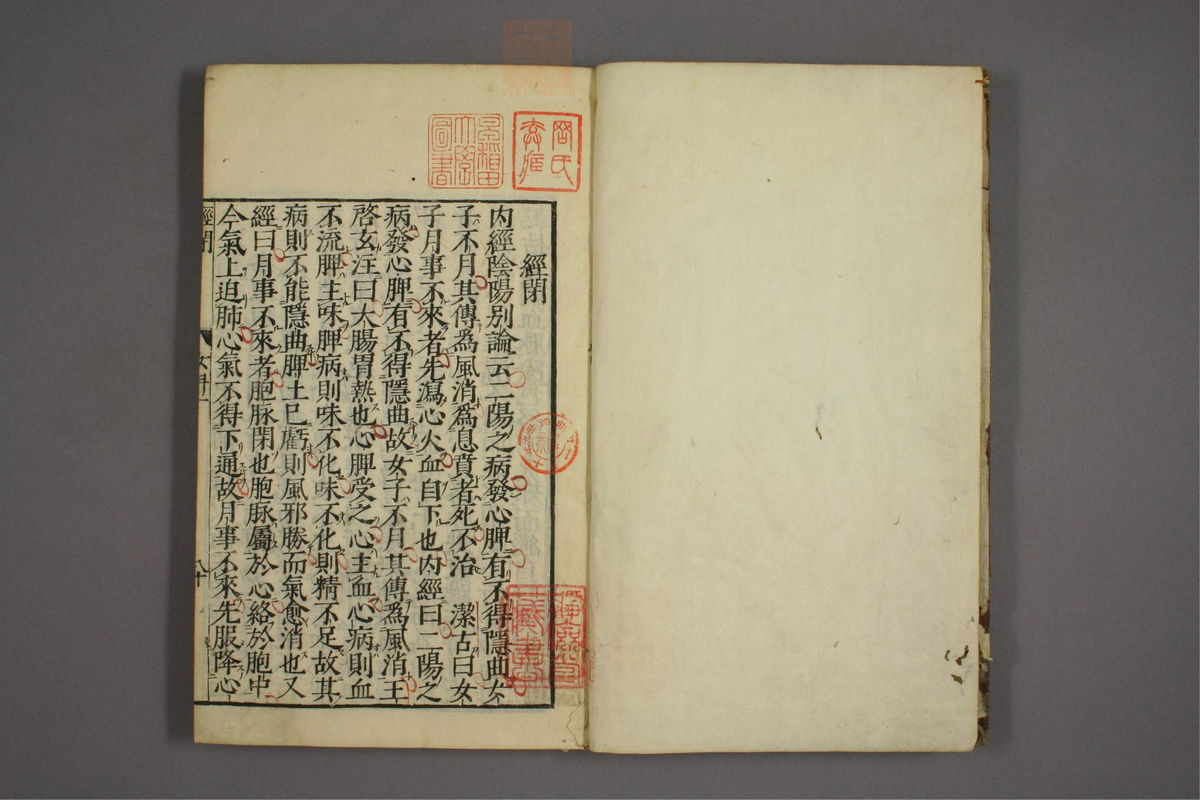 經閉
內經陰陽別論云二陽之病發心脾有不得隱曲女
子不月其傳爲風消爲息賁者死不治 潔古曰女
子月事不來者先瀉心火血自下也內經曰二陽之
病發心脾有不得隱曲故女子不月其傳爲風消王
啓玄注曰大腸胃熱也心脾受之心主血心病則血
不流脾主味脾病則味不化味不化則精不足故其
病則不能隱曲脾土已虧則風邪勝而氣愈消也又
經曰月事不來者胞脉閉也胞脉屬於心絡於胞中
今氣上迫肺心氣不得下通故月事不來先服降心
經閉